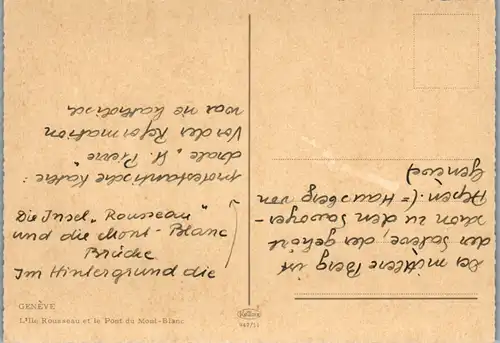 Die Insel „Rousseau"
und die Mont-Blanc
Brücke
Im Hintergrund die
protestantische Kathe:
drale „St. Pierre"
Vor der Reformation
war sie katholisch
Der mittlere Berg ist
der Salève, der gehört
schon zu den Savoyer-
Alpen. (= Hausberg von
Genève)
GENÈVE
L'Ile Rousseau et le Pont du Mont-Blanc